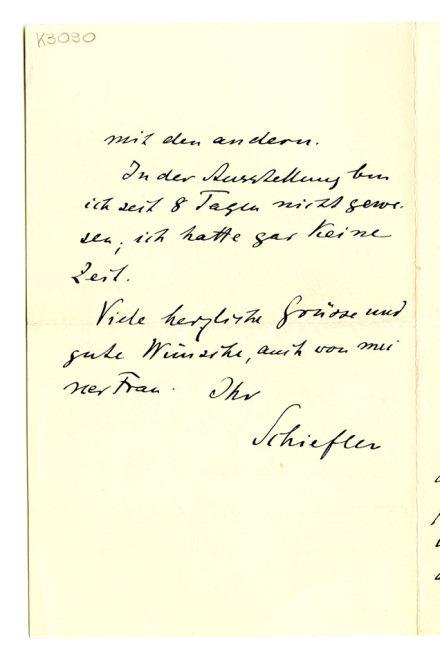 K3090
mit den andern.
In der Ausstellung bin
ich seit 8 Tagen nicht gewe-
sen; ich hatte gar keine
Zeit.
Viele herzliche Grüsse und
gute Wünsche, auch von mei
ner Frau. Ihr
Schiefler